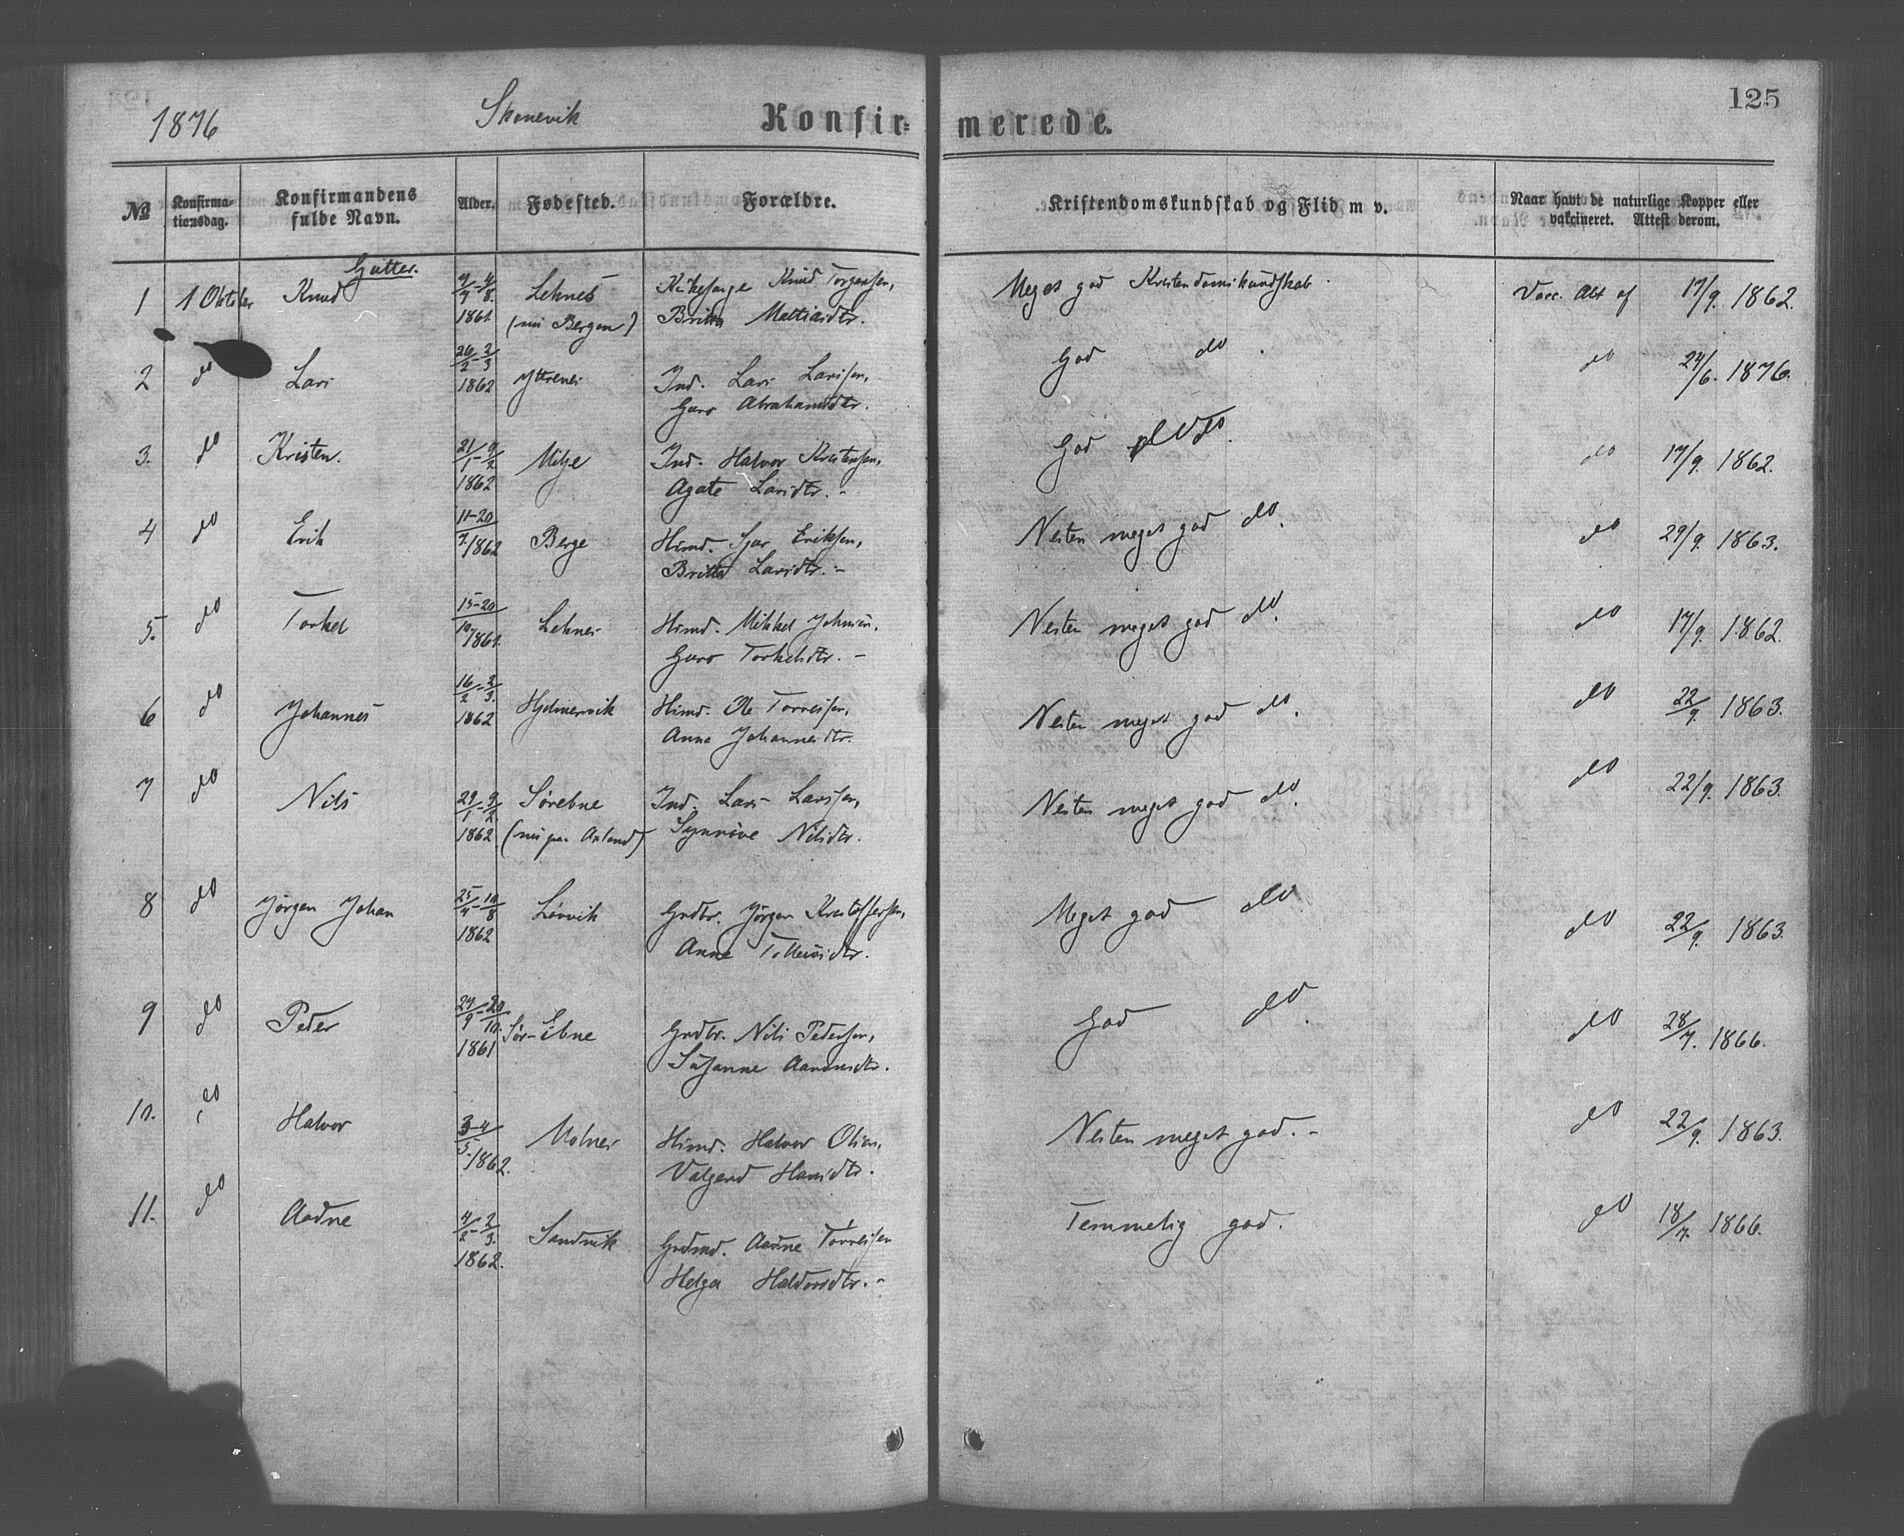 1876 Skonevik Konfir= merede. 125
No Konfirma-tionsdag. Konfirmandens fulde Navn. Alder. Fødested. Forældre. Kristendomskundskab og Flid m v. Naar havt de naturlige Kopper eller vakcineret. Attest derom.
Gutter.
1 1 Oktober Knud 4/8 Lehnes Kirkesanger Knud Torgersen, Meget god Kristendomskundskab. Vacc. Att af 17/9. 1862.
1861. (nu Bergen) Britha Mattiasdtr.
2 do Lars 26/2-2/3 Ytrenes Ind. Lars Larssen, God do. do 24/6. 1876.
1862 Guro Abrahamsdtr.
3. do Kristen. 21/1-9/2 Milje Ind. Halvor Kristensen, God do. do 17/9. 1862.
1862 Agate Larsdtr. -
4 do Erik 11-20/7. Berge Hsmd. Sjur Eriksen, Nesten meget god do. do 29/9. 1863.
1862 Britta Larsdtr. -
5. do Torkel 15-20/10. Lehnes Hsmd. Mikkel Johnsen, Nesten meget god do. do 17/9. 1862.
1861. Guro Torkelsdtr. -
6 do Johannes 16/2-2/3. Hjelmervik Hsmd. Ole Torreisen, Nesten meget god do. do 22/9. 1863.
1862 Anna Johannesdtr.
7 do Nils 29/1-9/2 Sørebne Ind. Lars Larssen, Nesten meget god do. do 22/9. 1863.
1862. (nu paa Axland) Synnøve Nilsdtr.
8 do Jørgen Johan 25/4-10/8 Løvvik Grdbr. Jørgen Kristoffersen, Meget god do do 22/9. 1863.
1862 Anne Tollevsdtr.
9 do Peder 27/9-20/10. Sør-Ebne Grdbr. Nils Pedersen, God do. do 28/7. 1866.
1861 Susanne Aamundsdtr.
10. do Halvor 3-4/5. Molnes Hsmd. Halvor Olsen, Nesten meget god. - do 22/9. 1863.
1862. Valgerd Hansdtr.
11. do Aadne 4/2-2/3. Sandvik Grdmd. Aadne Torreisen Temmelig god. do 18/7. 1866.
1862. Helga Haldorsdtr. -